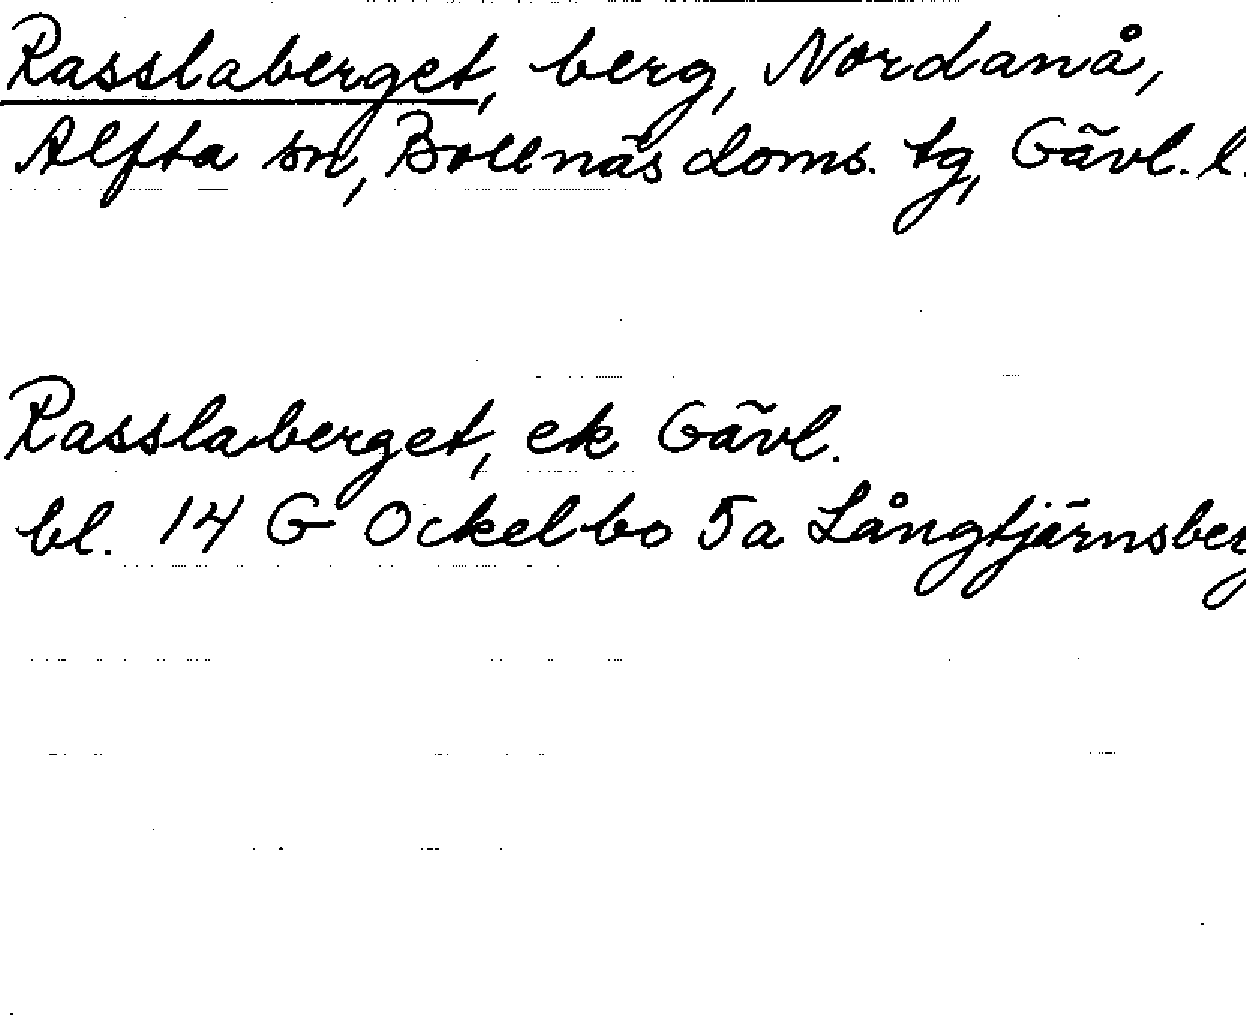 Rasslaberget, berg, Nordanå,
Alfta sn, Bollnäs doms. tg, Gävl. l.
Rasslaberget, ek Gävl.
bl. 14 G Ockelbo 5a Långtjärnsberg